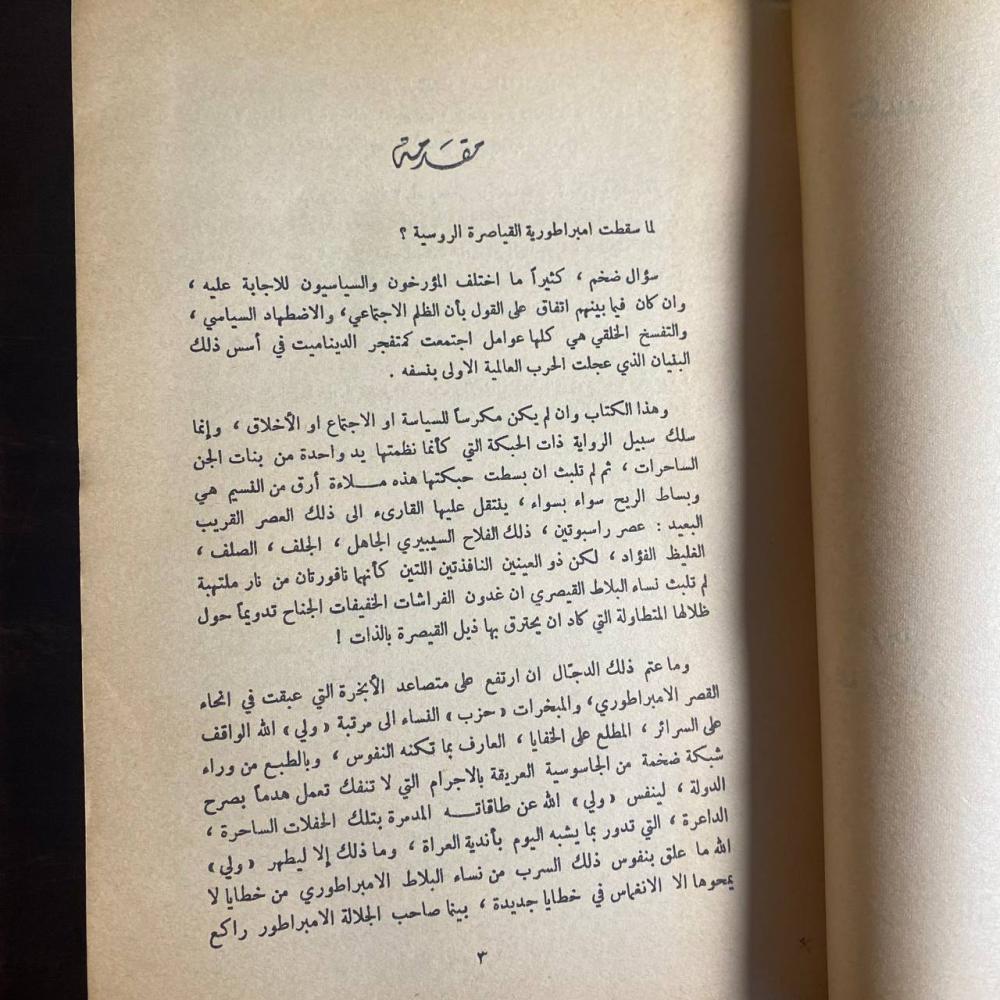 مقدمة
لما سقطت امبراطورية القياصرة الروسية ؟
سؤال ضخم ، كثيراً ما اختلف المؤرخون والسياسيون للاجابة عليه ،
وان كان فيا بينهم اتفاق على القول بأن الظلم الاجتماعي، والاضطهاد السياسي ،
والتفسخ الخلقي هي كلها عوامل اجتمعت كمتفجر الديناميت في أسس ذلك
البنيان الذي عجلت الحرب العالمية الاولى بنسفه .
وهذا الكتاب وان لم يكن مكرساً للسياسة او الاجتماع او الأخلاق ، وإنما
سلك سبيل الرواية ذات الحبكة التي كأنما نظمتها يد واحدة من بنات الجن
الساحرات ، ثم لم تلبث ان بسطت حبكتها هذه ملاءة أرق من النسيم هي
وبساط الريح سواء بسواء ، ينتقل عليها القارىء الى ذلك العصر القريب
البعيد : عصر راسبوتين ، ذلك الفلاح السيبيري الجاهل ، الجلف ، الصلف ،
الغليظ الفؤاد ، لكن ذو العينين النافذتين اللتين كأنها نافورتان من نار ملتهبة
لم تلبث نساء البلاط القيصري ان غدون الفراشات الخفيفات الجناح تدويماً حول
ظلالها المتطاولة التي كاد ان يحترق بها ذيل القيصرة بالذات !
وما عتم ذلك الدجّال ان ارتفع على متصاعد الأبخرة التي عبقت في انحاء
القصر الامبراطوري، والمبخرات «حزب» النساء الى مرتبة «ولي» الله الواقف
على السرائر ، المطلع على الخفايا ، العارف بما تكنه النفوس ، وبالطبع من وراء
شبكة ضخمة من الجاسوسية العريقة بالاجرام التي لا تنفك تعمل هدماً بصرح
الدولة ، لينفس «ولي» الله عن طاقاته المدمرة بتلك الحفلات الساحرة ،
الداعرة ، التي تدور بما يشبه اليوم بأندية العراة ، وما ذلك إلا ليطهر «ولي»
الله ما علق بنفوس ذلك السرب من نساء البلاط الامبراطوري من خطايا لا
يمحوها الا الانغماس في خطايا جديدة ، بينما صاحب الجلالة الامبراطور راكع
٣